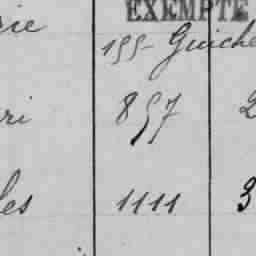 rie EXEMPTE
199- Guiche
ri 857 2
les 1111 3